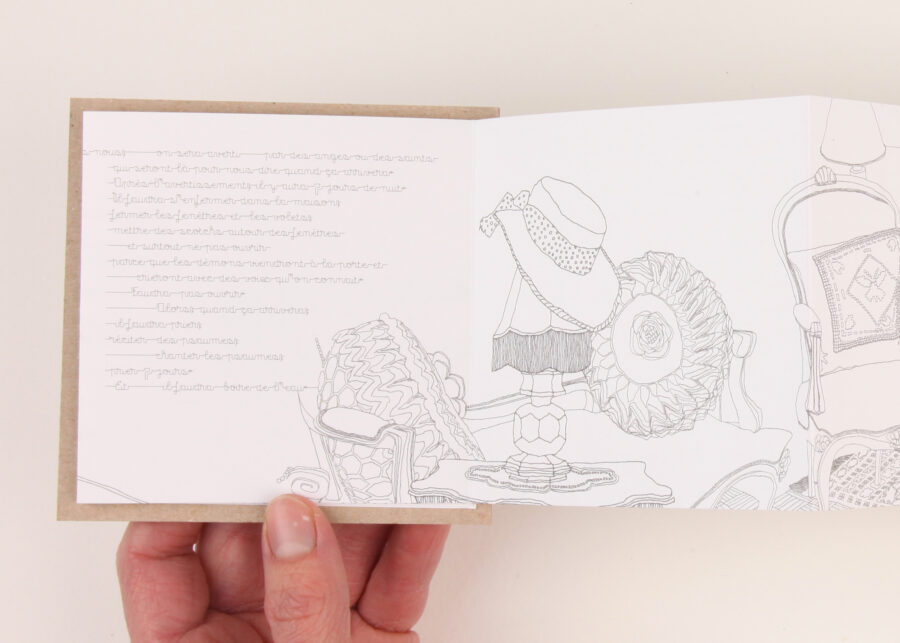 s nous on sera averti par des anges ou des saints
qui seront là pour nous dire quand ça arrivera
Après l'avertissement il y aura 7 jours de nuit
Il faudra s'enfermer dans la maison
fermer les fenêtres et les volets
mettre des scotchs autour des fenêtres
et surtout ne pas ouvrir
parce que les démons viendront à la porte et
crieront avec des voix qu'on connait
Faudra pas ouvrir
Alors quand ça arrivera
il faudra prier
réciter des psaumes
chanter les psaumes
prier 7 jours
Et il faudra boire de l'eau